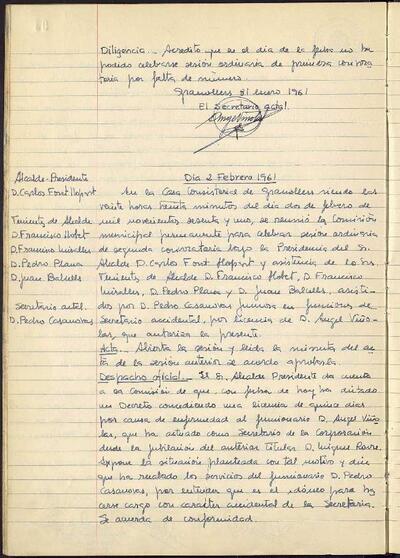 Diligencia.- Acredito que en el día de la fecha no ha
podido celebrarse sesión ordinaria de primera convoca
toria por falta de número.
Granollers 31 enero 1961
El Secretario actal.
Alcalde-Presidente
D. Carlos Font Llopart
Teniente de Alcalde
D. Francisco Llobet
D. Francisco Miralles
D. Pedro Plana
D. Juan Balcells
Secretario actal.
D. Pedro Casanovas
Día 2 Febrero 1961
En la Casa Consistorial de Granollers siendo las
veinte horas treinta minutos del día dos de febrero de
mil novecientos sesenta y uno, se reunió la Comisión
municipal permanente para celebrar sesión ordinaria
de segunda convocatoria bajo la Presidencia del Sr.
Alcalde D. Carlos Font Llopart y asistencia de los Srs.
Tenientes de Alcalde D. Francisco Llobet, D. Francisco
Miralles, D. Pedro Plana y D. Juan Balcells, asisti-
dos por D. Pedro Casanovas en funciones de
Secretario accidental, por licencia de D. Angel Viño-
las, que autoriza la presente.
Acta.- Abierta la sesión y leida la minuta del ac-
ta de la sesión anterior se acordo aprobarla.
Despacho oficial.- El Sr. Alcalde Presidente da cuenta
a la Comisión de que con fecha de hoy ha dictado
un Decreto concediendo una licencia de quince dias
por causa de enfermedad al funcionario D. Angel Viño
las, que ha actuado como Secretario de la Corporación
desde la jubilación del anterior titular D. Miguel
Expone la situación planteada con tal motivo y dice
que ha recabado los servicios del funcionario D. Pedro
Casanovas, por entender que es el idóneo para ha
cerse cargo con carácter accidental de la Secretaria.
Se acuerda de conformidad.